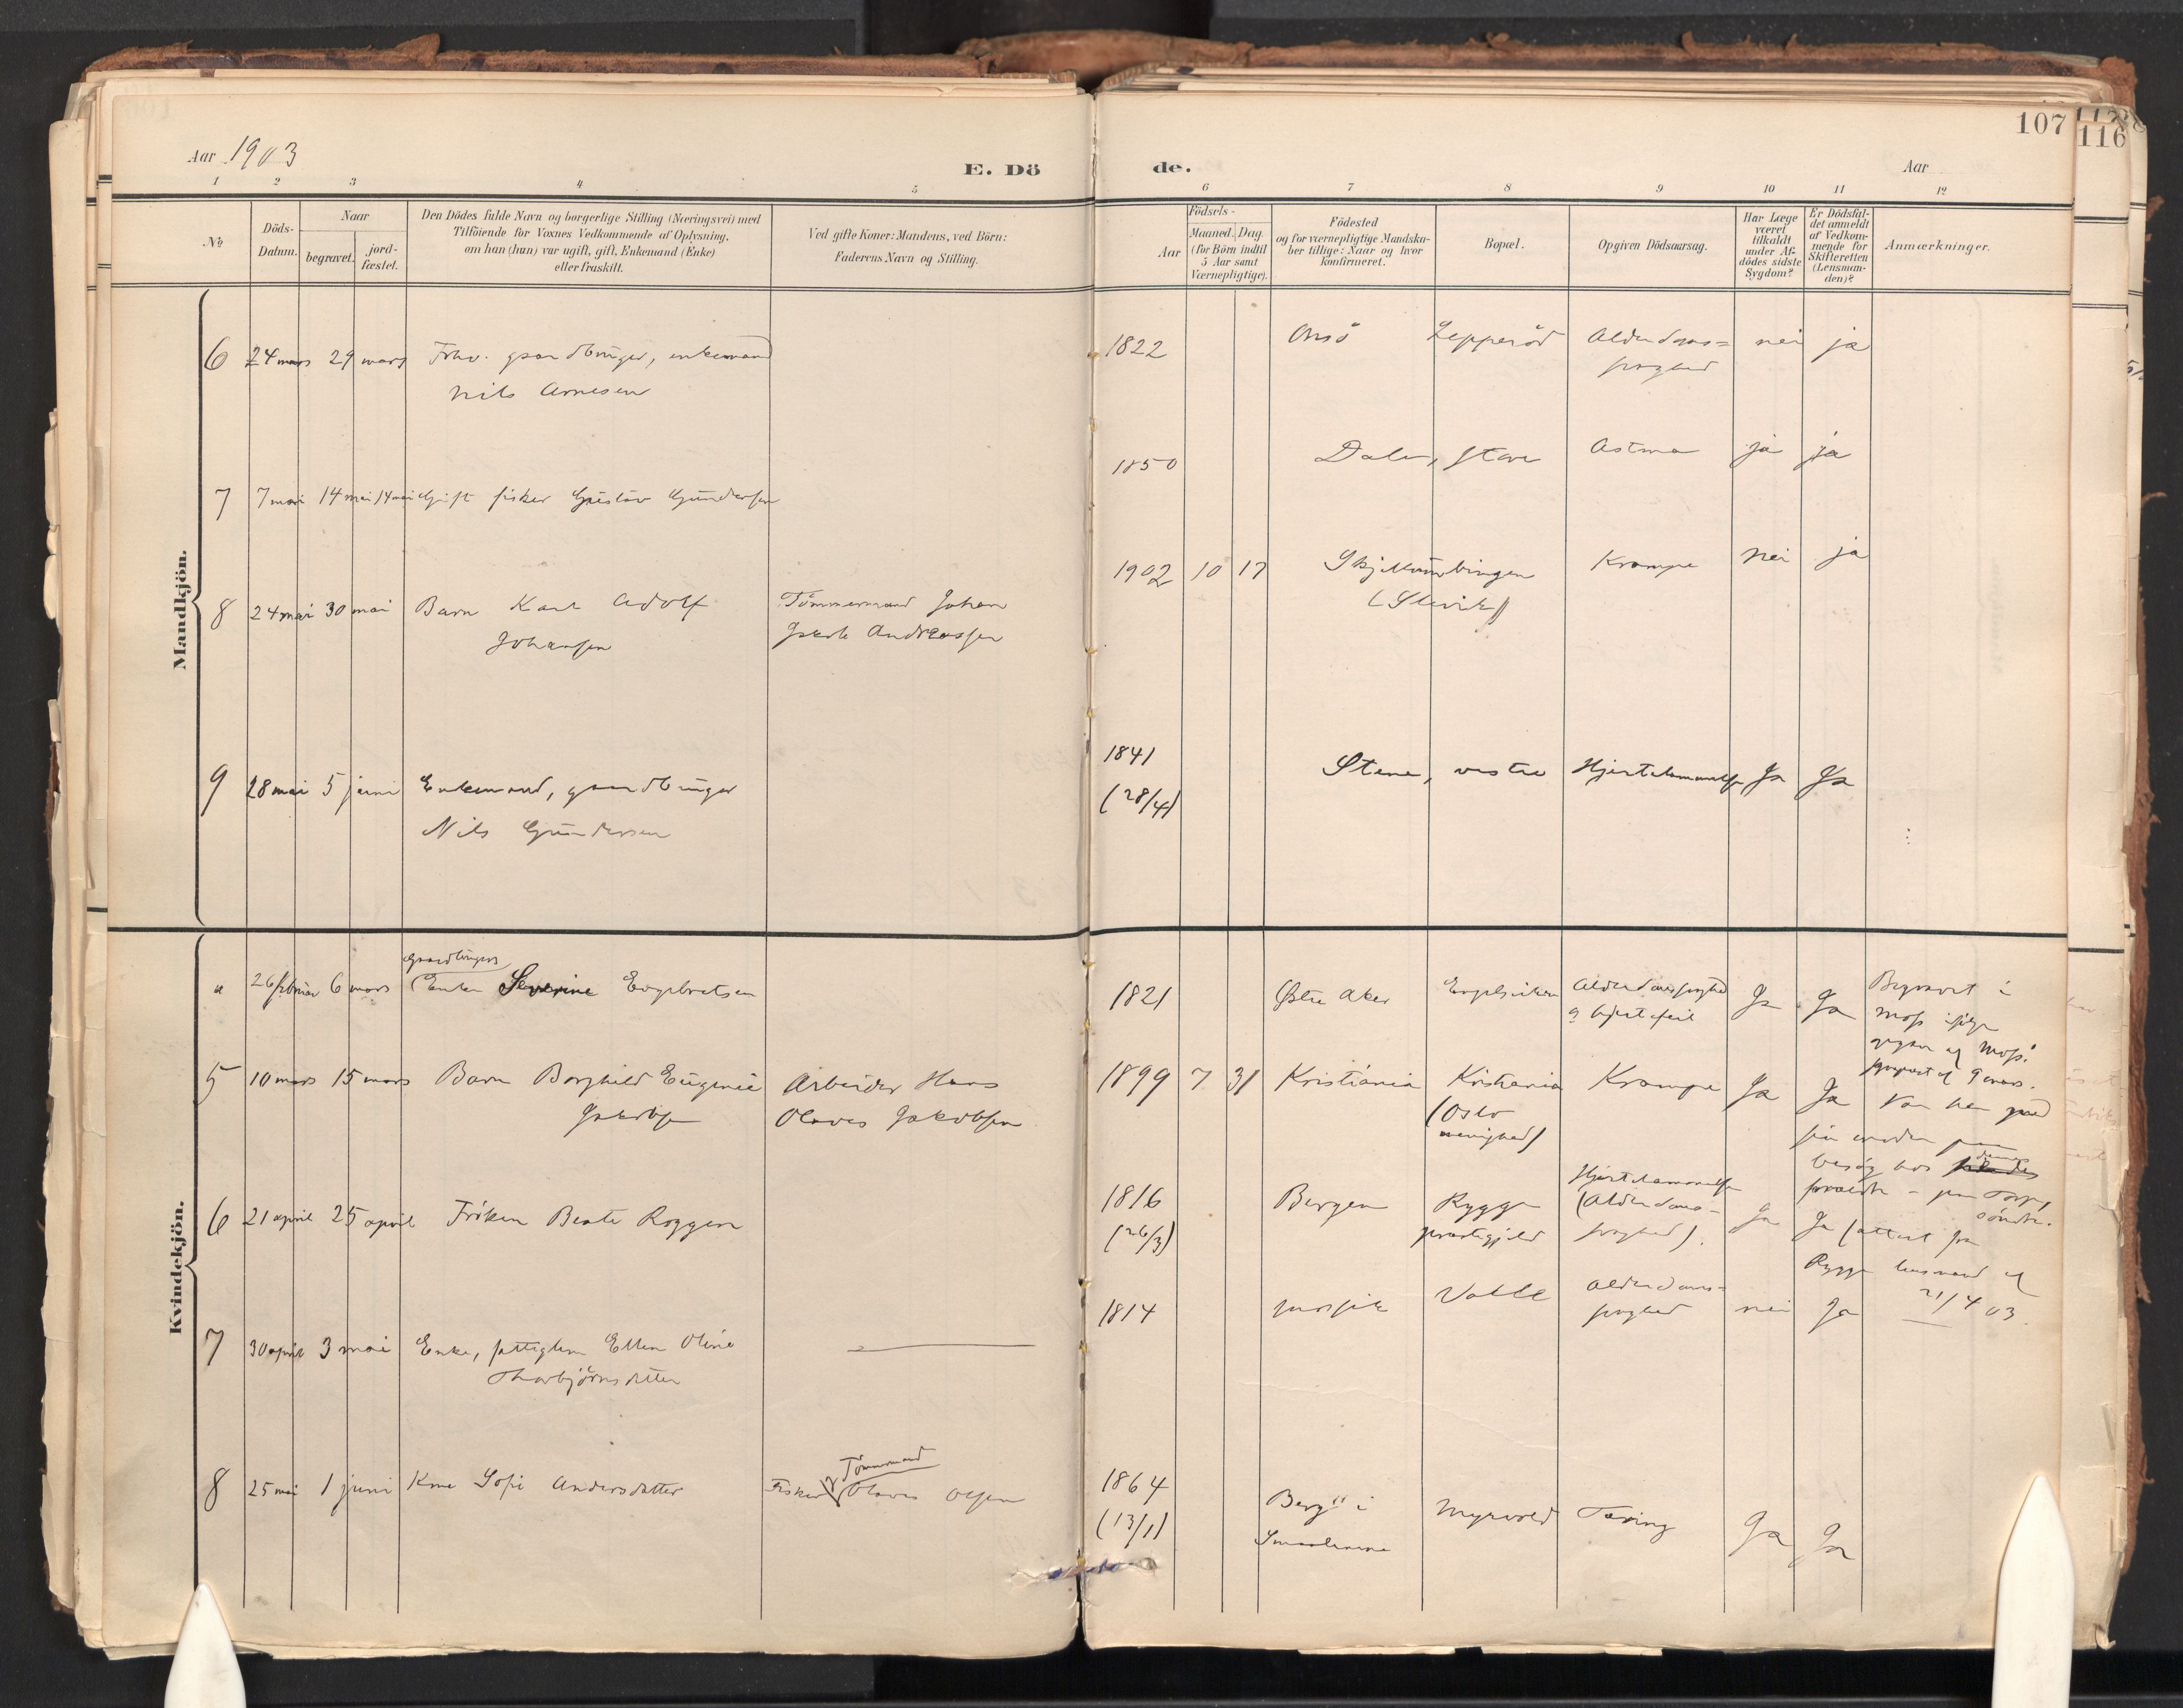 107
116
Aar 1903
E. Dö
de.
Aar
1 2 3 4 5
6 7 8 9 10 11 12
No
Döds-
Datum.
Naar
begravet.
jord-
fæstet.
Den Dödes fulde Navn og borgerlige Stilling (Næringsvei) med
Tilföiende for Voxnes Vedkommende af Oplysning,
om han (hun) var ugift, gift, Enkemand (Enke)
eller fraskilt.
Ved gifte Koner: Mandens, ved Börn:
Faderens Navn og Stilling.
Födsels-
Aar
Maaned. Dag.
(for Börn indtil
5 Aar samt
Værnepligtige).
Födested
og for værnepligtige Mandska-
ber tillige: Naar og hvor
konfirmeret.
Bopæl.
Opgiven Dödsaarsag.
Har Læge
været
tilkaldt
under Af-
dödes sidste
Sygdom?
Er Dödsfal-
det anmeldt
af Vedkom-
mende for
Skifteretten
(Lensman-
den)?
Anmærkninger.
Mandkjön.
6 24 mars 29 mars Fhv. gaardbruger, enkemand
Nils Arnesen
1822 Onsö Lepperöd Alderdoms=
svaghed nei ja
7 7 mai 14 mai 14 mai Gift fisker Gustav Gundersen
1850 Dale, Astma ja ja
8 24 mai 30 mai Barn Karl Adolf
Johansen
Tömmermand Johan
Jakob Andreassen
1902 10 17
(Slevik)
Krampe nei ja
9 28 mai 5 juni Enkemand, gaardbruger
Nils Gundersen
1841
(28/4)
Stene, vestre Hjertelammelse Ja Ja
Kvindekjön.
Gaardbrugers
26 februar 6 mars Enke Severine Engebretsen
1821 Østre Aker Engelsviken Alderdomssvaghed
og hjertefeil Ja Ja
Begravet i
Moss ifölge
5 10 mars 15 mars Barn Borghild Eugenie
Jakobsen
Arbeider Hans
Olaves Jakobsen
1899 7 31 Kristiania Kristiania
(Oslo
menighed)
Krampe Ja Ja
besög hos
6 21 april 25 april Fröken Beate Roggen
1816
(26/3)
Bergen Rygge
præstegjeld
Hjertelammelse
(Alderdoms-
svaghed). Ja Ja (attest fra
Rygge lensmand af
21/4 03.
7 30 april 3 mai Enke, fattiglem Ellen Oline
Thorbjörnsdatter
1814 Alderdoms-
svaghed nei Ja
8 25 mai 1 juni Kone Sofie Andersdatter
Tömmermand
Fisker Olaves Olsen
1864
(13/1)
Berg i
Smaalenene
Myrvold Tæring Ja Ja